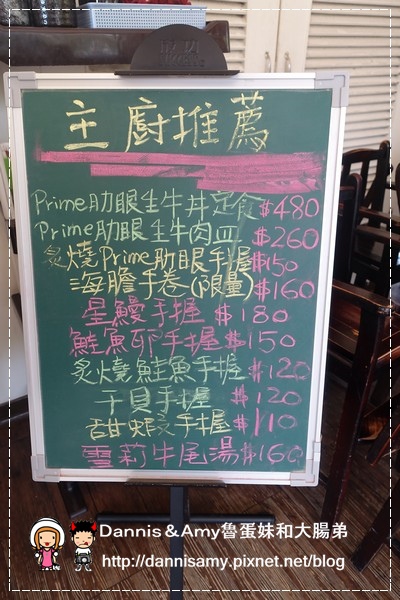 主廚推薦
Prime肋眼生牛丼定食$480
Prime肋眼生牛肉皿 $260
炙燒Prime肋眼手握$150
海膽手卷(限量)$160
星鰻手握 $180
鮭魚卵手握 $150
炙燒鮭魚手握 $120
干貝手握 $120
甜蝦手握 $110
雪莉牛尾湯$160
Dannis & Amy魯蛋妹和大腸弟
http://dannisamy.pixnet.net/blog